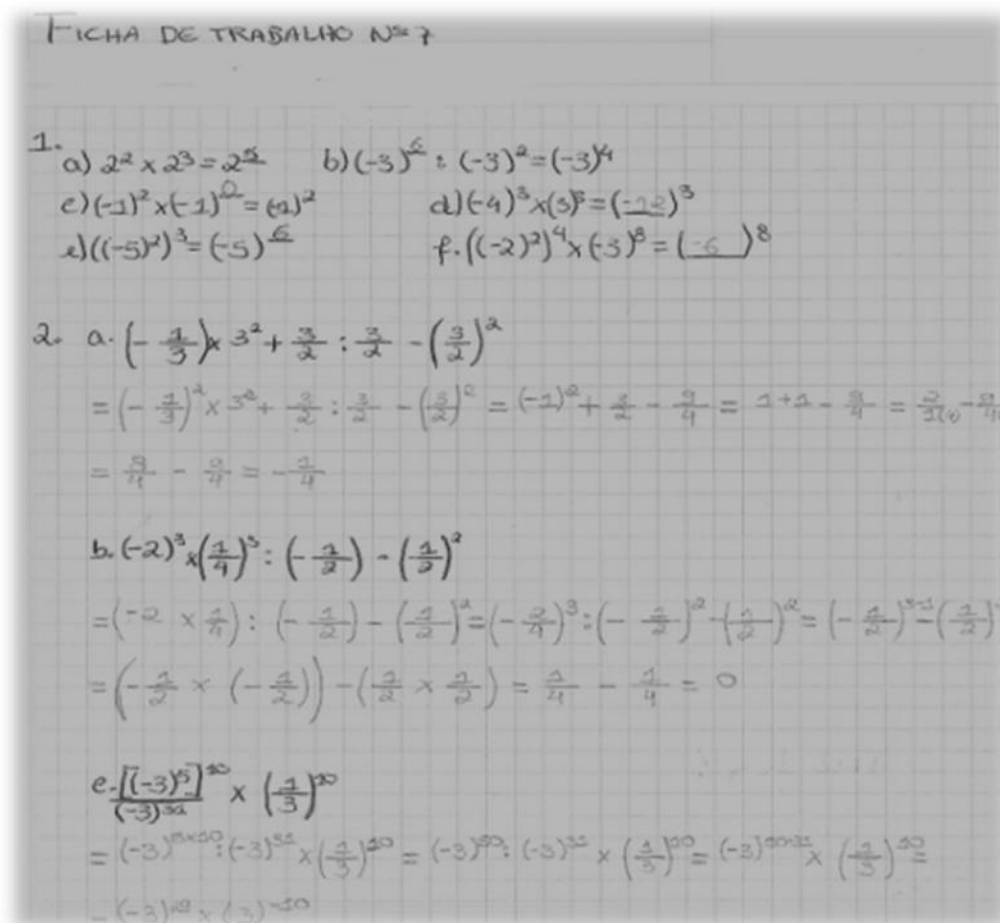 FICHA DE TRABALHO Nº 7
1.
a) 2² × 2³ = 2⁵ b) (-3)⁶ : (-3)² = (-3)⁴
c) (-1)² × (-1)⁰ = (-1)² d) (-4)³ × (3)³ = (-12)³
e) ((-5)²)³ = (-5)⁶ f. ((-2)²)⁴ × (-3)⁸ = (-6)⁸
2. a. (-1/3) × 3² + 3/2 : 3/2 - (3/2)²
= (-1/3)² × 3² + 3/2 : 3/2 - (3/2)² = (-1)² + 2/2 - 9/4 = 1+1 - 9/4 = 2/1(4) - 9/4
= 8/4 - 9/4 = -1/4
b. (-2)³ × (1/4)³ : (-1/2) - (1/2)²
= (-2 × 1/4) : (-1/2) - (1/2)² = (-2/4)³ : (-1/2)² - (1/2)² = (-1/2)³⁻¹ - (1/2)
= (-1/2 × (-1/2)) - (1/2 × 1/2) = 1/4 - 1/4 = 0
c. [(-3)⁵]¹⁰/(-3)³¹ × (1/3)²⁰
= (-3)⁵ˣ¹⁰ : (-3)³¹ × (1/3)²⁰ = (-3)⁵⁰ : (-3)³¹ × (1/3) = (-3) × (1/3) =